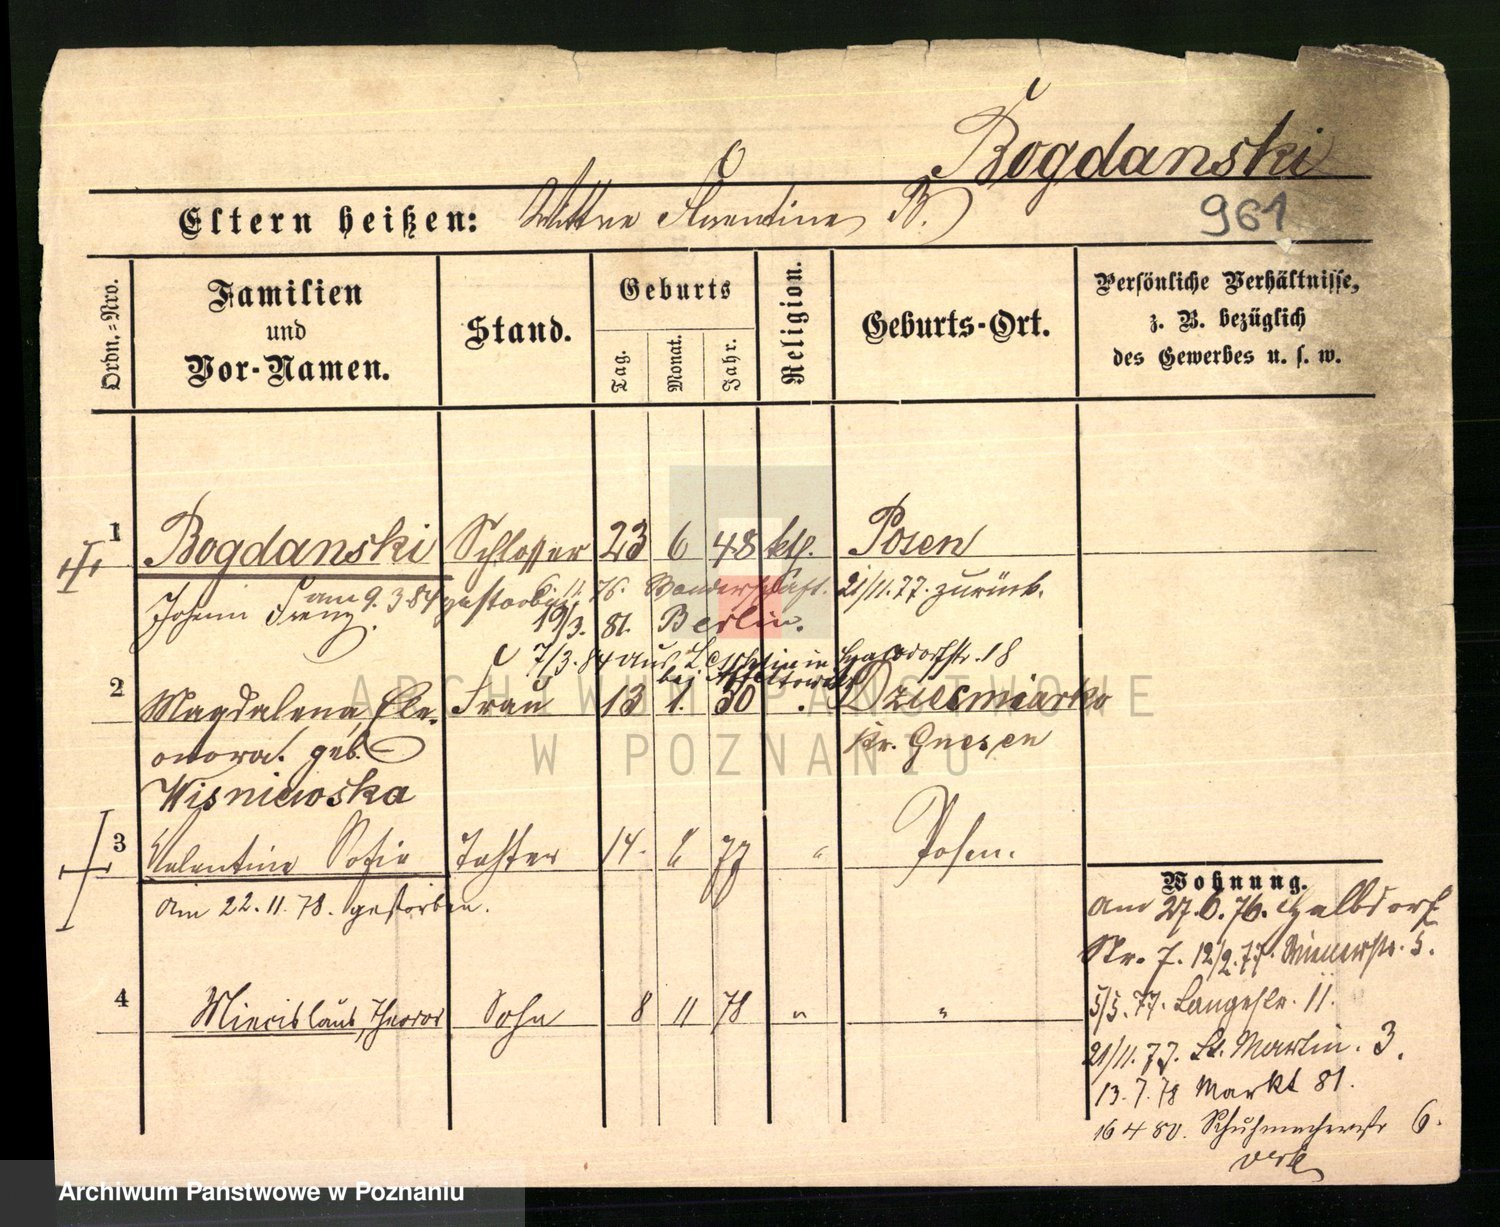 Bogdanski
Eltern heißen: Wittwe Florentine B.
961
Ordn.=Nro.
Familien
und
Vor-Namen.
Stand.
Geburts
Tag.
Monat.
Jahr.
Religion.
Geburts-Ort.
Persönliche Verhältnisse,
z. B. bezüglich
des Gewerbes u. s. w.
1 Bogdanski Schlosser 23 6 48 kth. Posen
Johann Franz am 9. 3 84 gestorben
11. 76. Wanderschaft. 21/11.77. zurück.
19/3. 81. Berlin.
7/3. 84 aus in 18
bei
2 Magdalena Ele- Frau 13 1. 50 Dziecmiarko
onora. geb. Kr. Gnesen
Wisniewska
3 Valentine Sofie Tochter 14. 77 " Posen.
am 22. 11. 78. gestorben.
4 Miecislaus, Theodor Sohn 8 11 78 " "
Wohnung.
am 27. 6. 76. Halbdorf
Str. 7. 12/2. 77. 5.
5/5. 77. Langestr. 11.
21/11. 77. St. Martin. 3.
13. 7. 78 Markt 81.
16 4 80. Schuhmacherstr 6.
ARCHIWUM PAŃSTWOWE
W POZNANIU
Archiwum Państwowe w Poznaniu